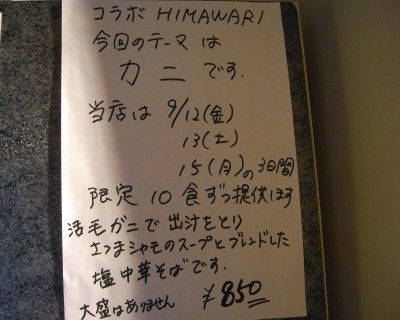 コラボ HIMAWARI
今回のテーマは
カニです.
当店は 9/12(金)
13(土)
15(月)の3日間
限定 10食ずつ提供します
活毛ガニで出汁をとり
さつまシャモのスープとブレンドした
塩中華そばです.
大盛はありません ¥850